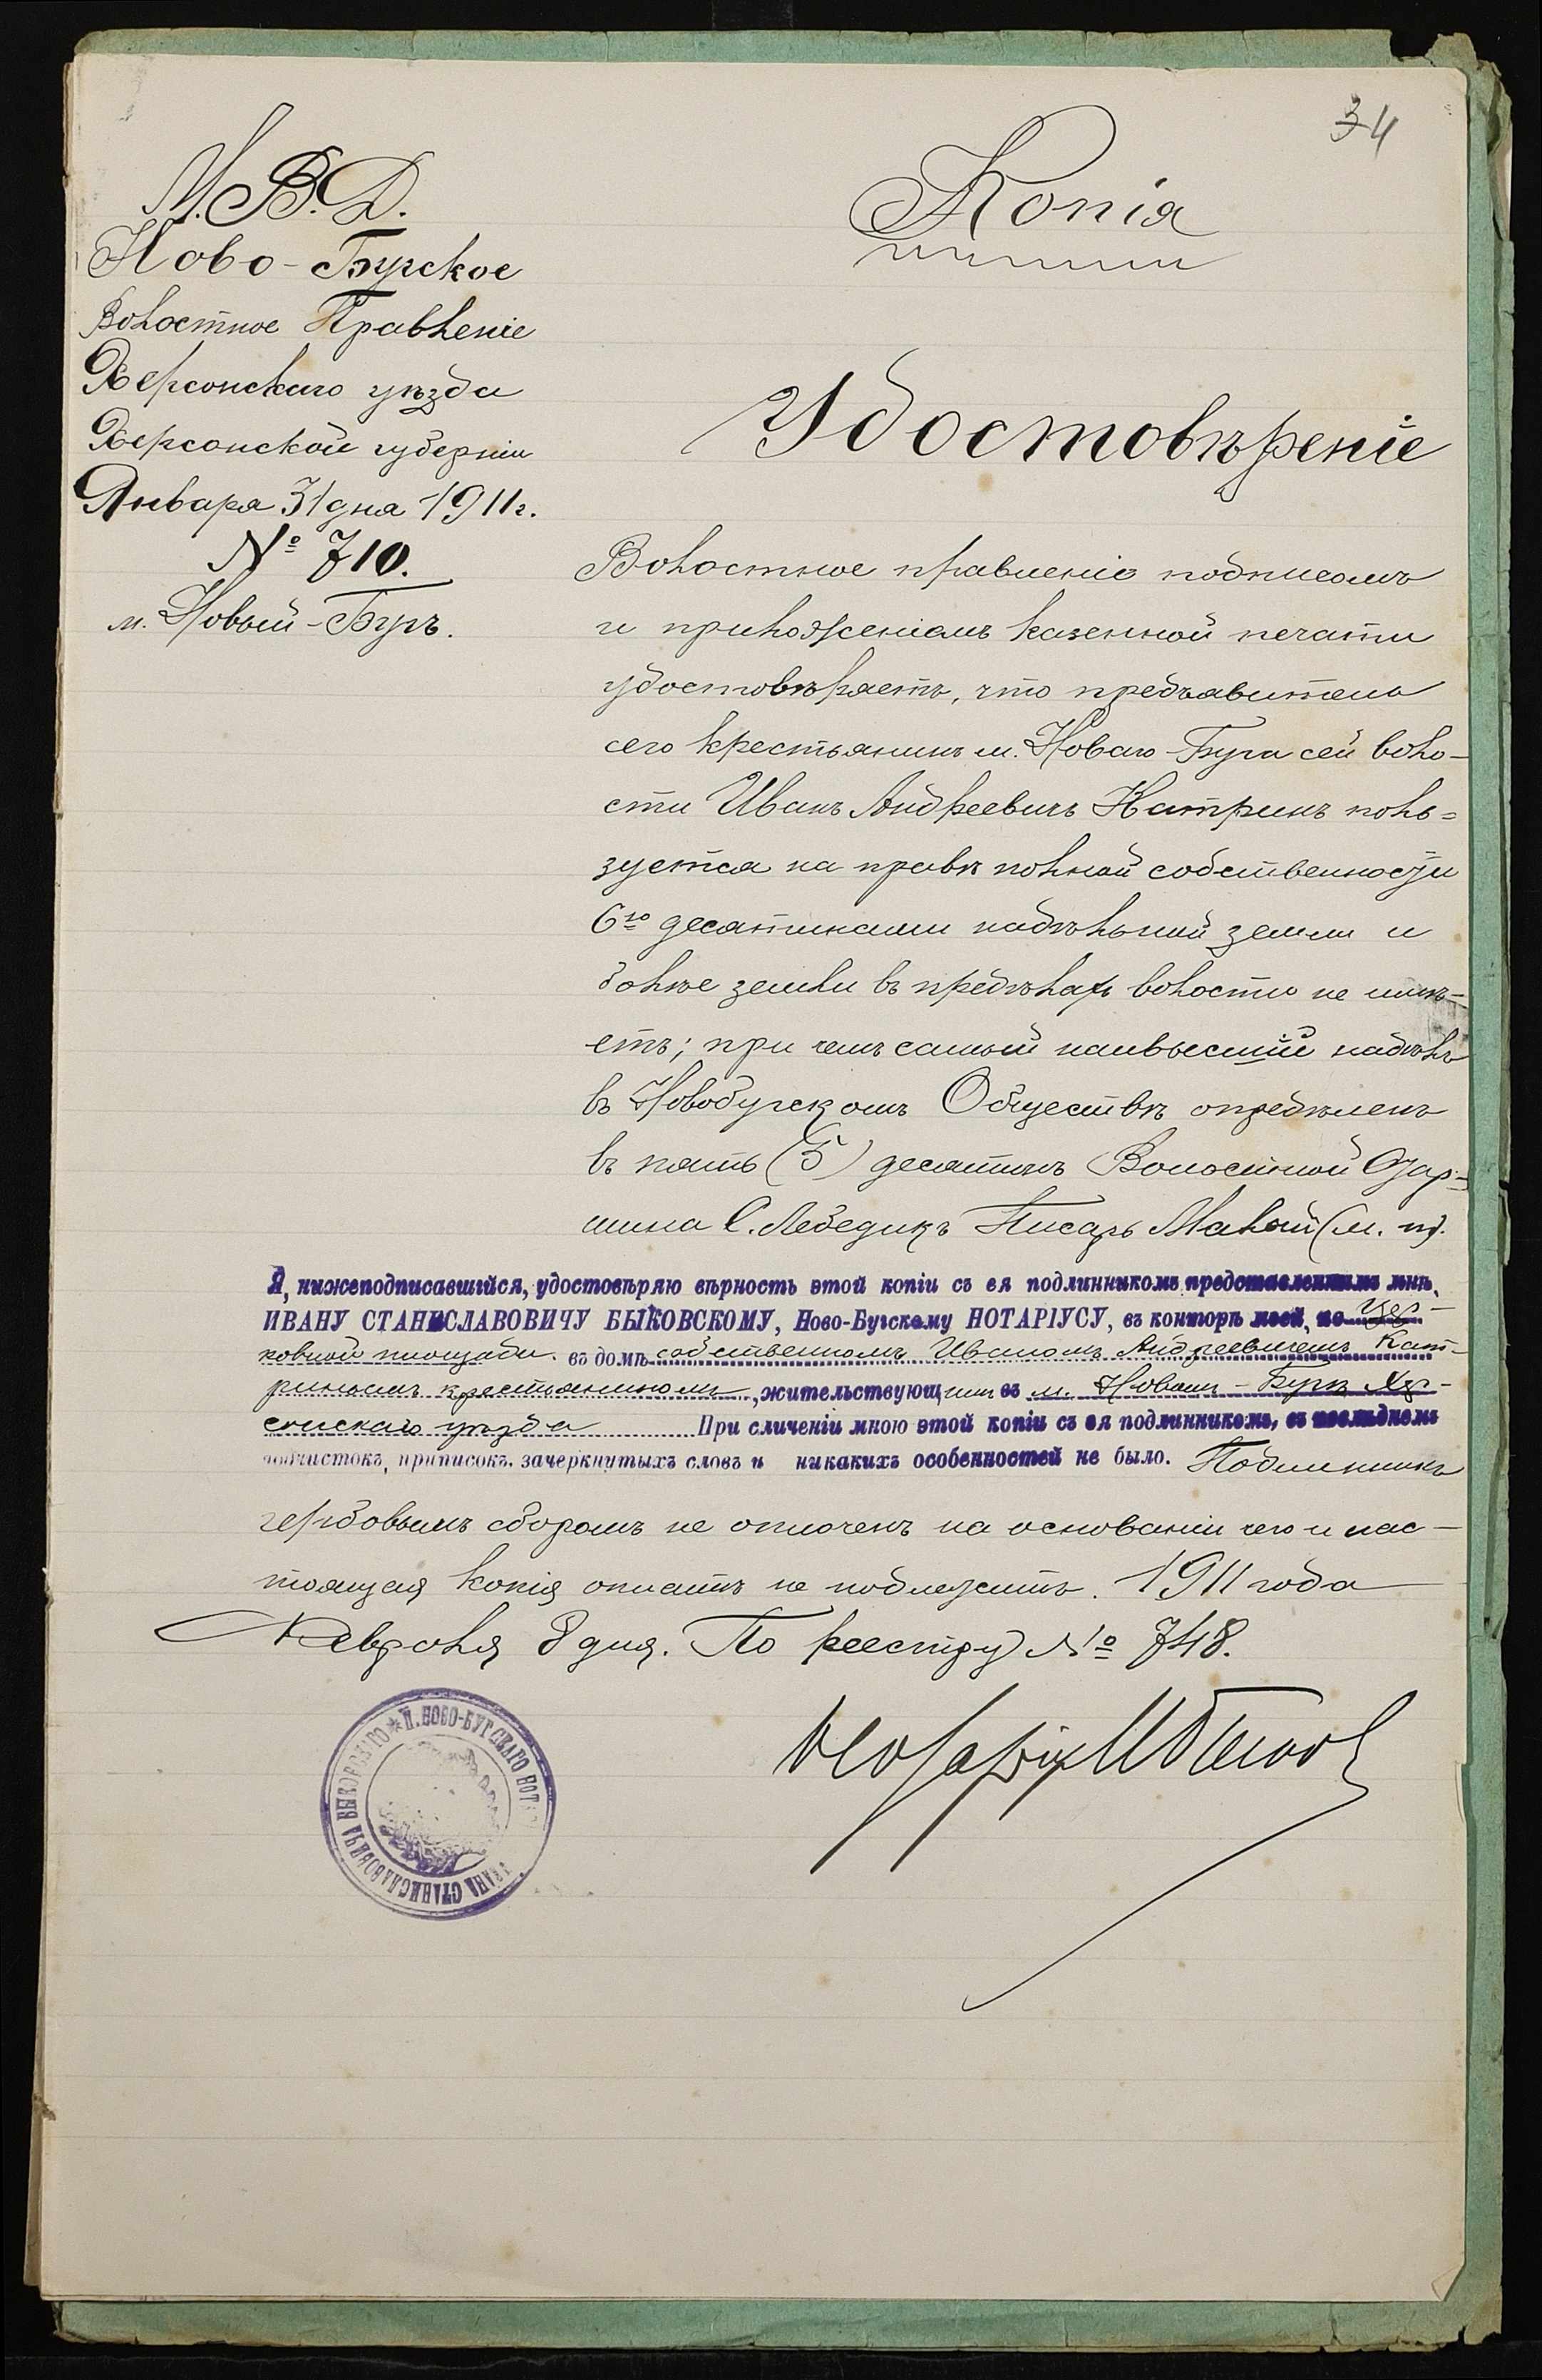 34
М.В.Д.
Ново-Бугское
Волостное Правленіе
Херсонскаго уѣзда
Херсонской губерніи
Января 31 дня 1911 г.
№ 710.
м. Новый-Бугъ.
Копія
Удостовѣреніе
Волостное правленіе подписомъ
и приложеніемъ казенной печати
удостовѣряетъ, что предъявитель
сего крестьянинъ м. Новаго-Буга сей воло-
сти Иванъ Андреевичъ Катринъ поль=
зуется на правѣ полной собственности
6ю десятинами надѣльной земли и
болѣе земли въ предѣлах волости не имѣ-
етъ; при чемъ самый наивысшій надѣлъ
въ Новобугскомъ Обществѣ опредѣленъ
въ пять (5) десятинъ Волостной Стар=
шина С. Лебедикъ Писарь Малый (м. п).
Я, нижеподписавшійся, удостовѣряю вѣрность этой копіи съ ея подлинникомъ представленнымъ мнѣ,
ИВАНУ СТАНИСЛАВОВИЧУ БЫКОВСКОМУ, Ново-Бугскому НОТАРІУСУ, въ конторѣ моей, по Цер-
ковной площади. въ домѣ собственномъ Иваномъ Андреевичемъ Кат-
ринымъ крестьяниномъ, жительствующим въ м. Новомъ-Бугѣ Хер-
сонскаго уѣзда При сличеніи мною этой копіи съ ея подлинникомъ, въ послѣднемъ
подчистокъ, приписокъ. зачеркнутыхъ словъ и никакихъ особенностей не было. Подлинникъ
гербовымъ сборомъ не оплоченъ на основаніи чего и нас-
тоящая копія оплатѣ не подлежитъ. 1911 года
Февраля 8 дня. По реестру № 748.
Нотаріус И Быков
П. НОВО-БУГСКАГО НОТ ИВАНА СТАНИСЛАВОВИЧА БЫКОВСКАГО